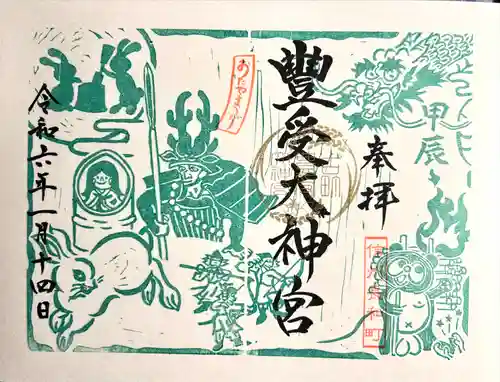 甲辰
奉拝
豐受大神宮
おたやまつり
令和六年一月十四日